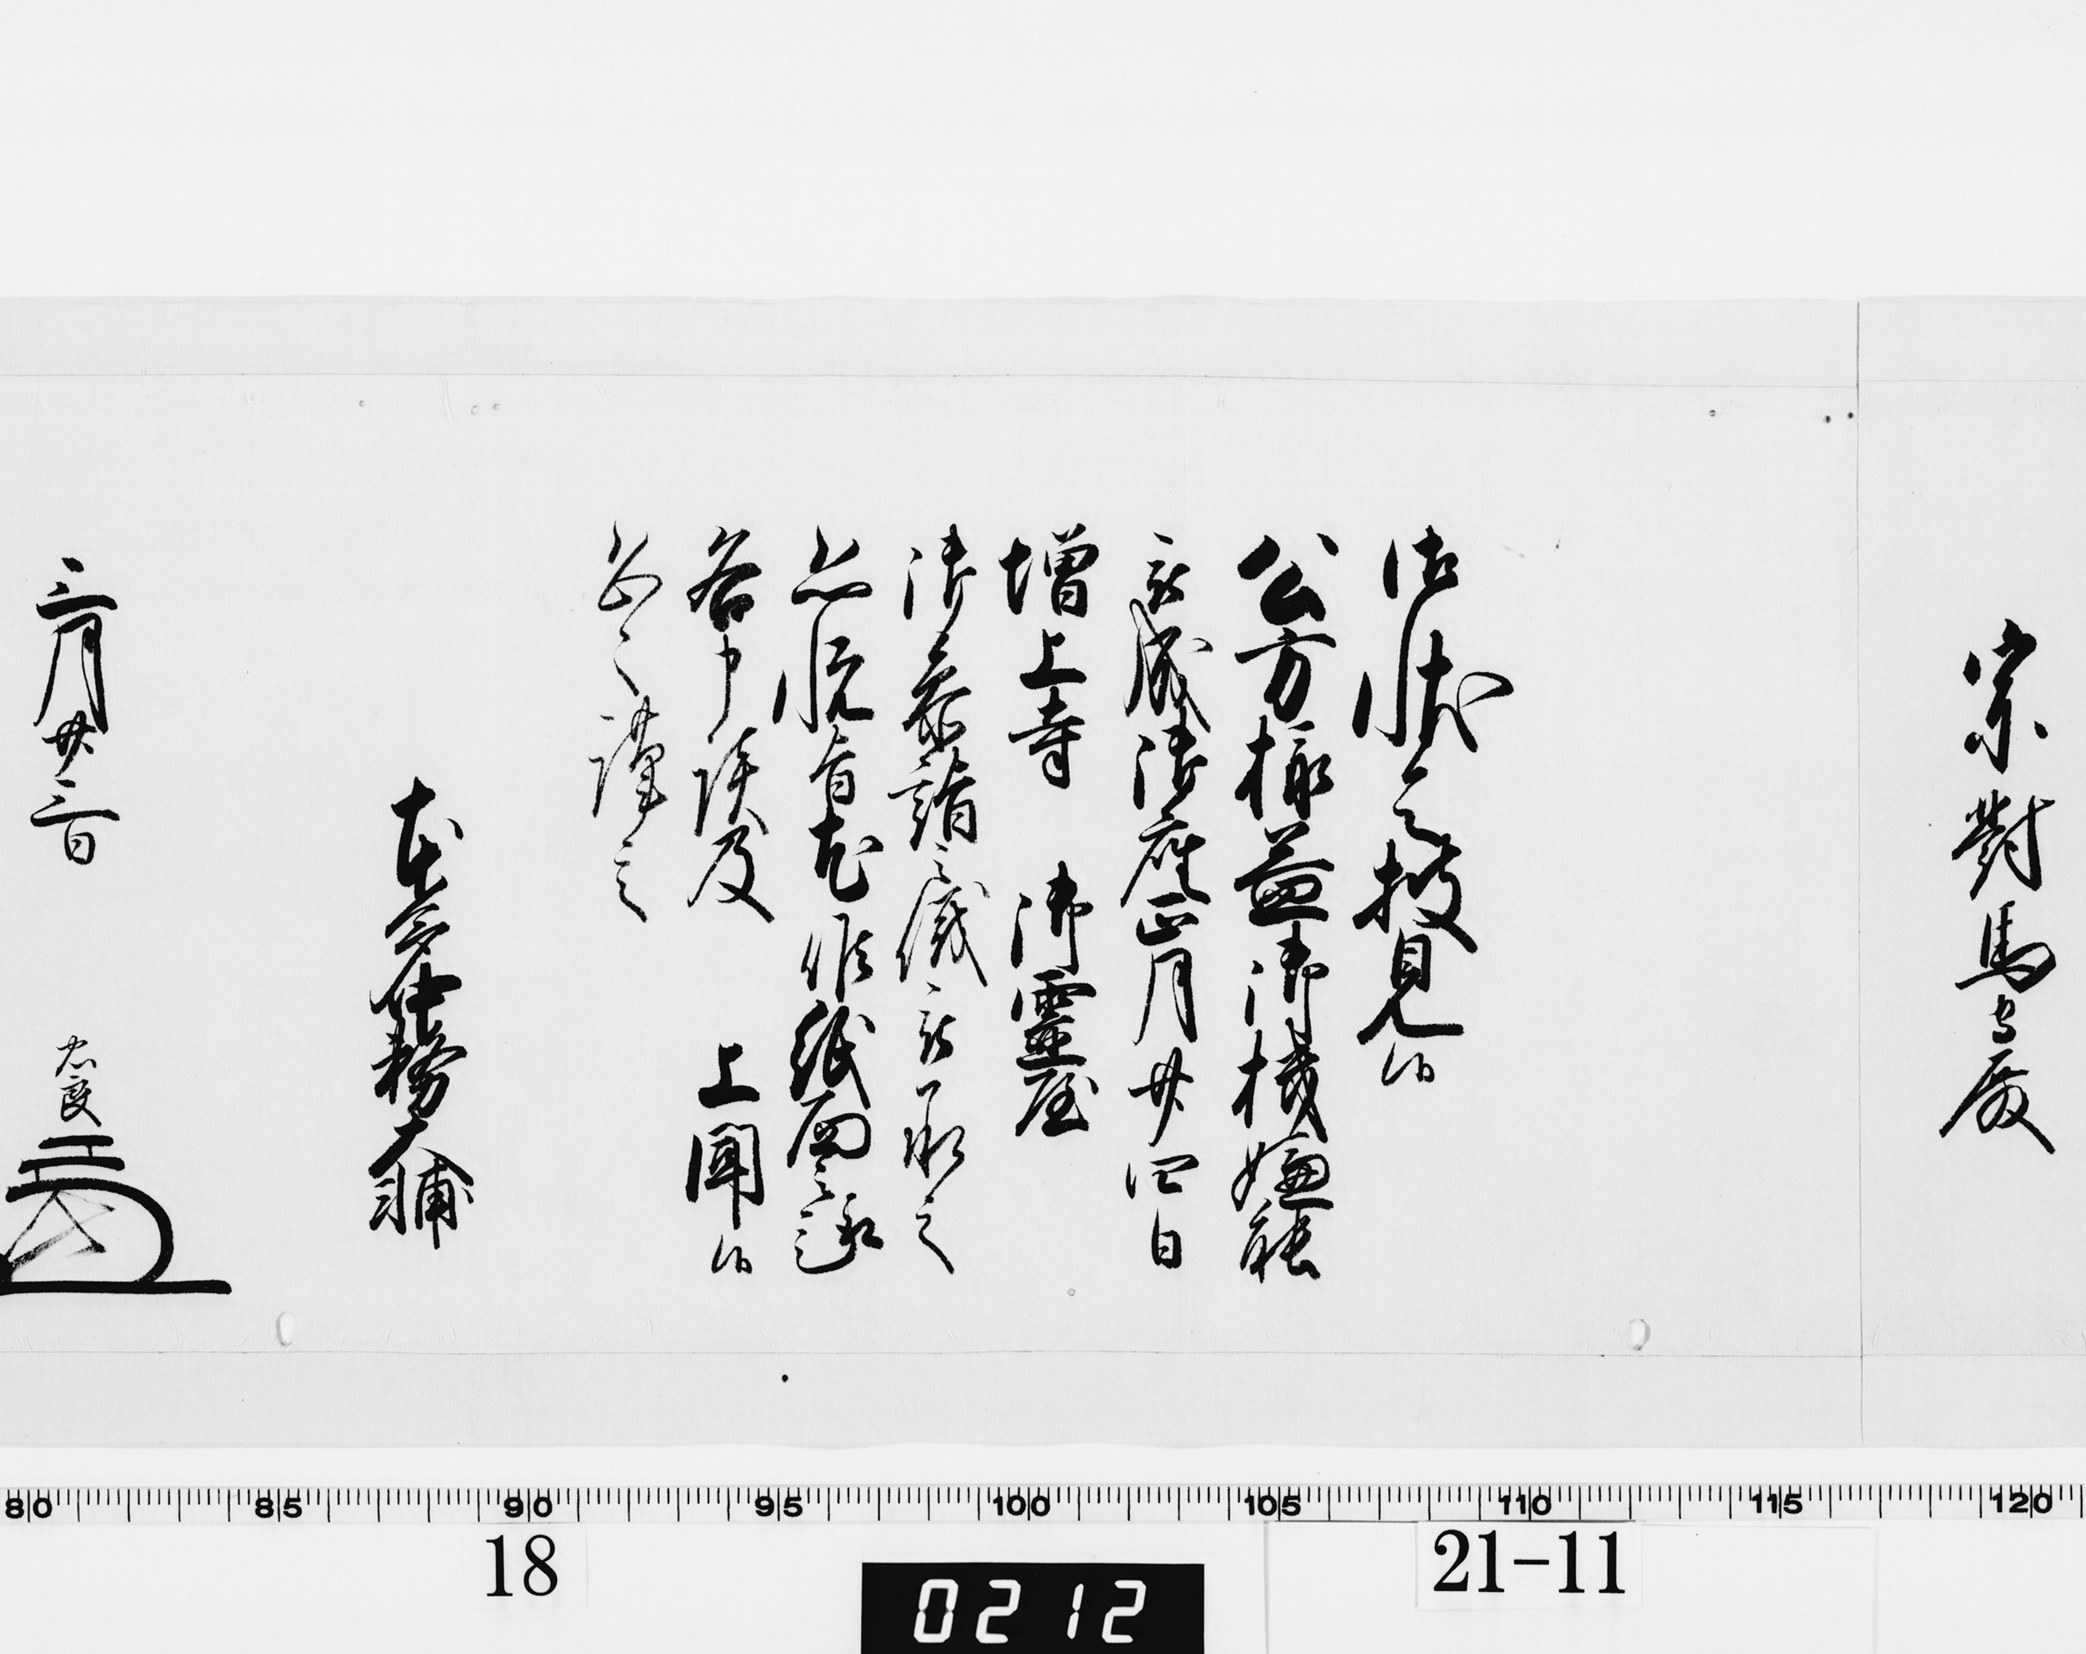 宗對馬守殿
御状令披見候
公方様益御機嫌能
被成御座正月廿四日
増上寺 御霊屋
御参詣之儀被承之
恐悦旨尤候紙面之趣
各申談及 上聞候
恐々謹言
本多中務大輔
三月廿三日 忠良
80 85 90 95 100 105 110 115 120
18 21-11
0212